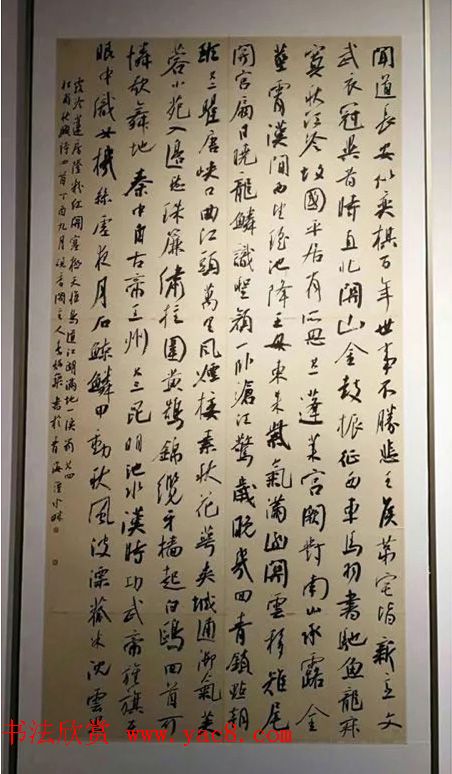 聞道長安似奕棋百年世事不勝悲王侯第宅皆新主文
武衣冠異昔時直北關山金鼓振征西車馬羽書馳魚龍寂
寞秋江冷故國平居有所思其一蓬萊宮闕對南山承露金
莖霄漢間西望瑤池降王母東來紫氣滿函關雲移雉尾
開宮扇日曉龍鱗識聖顏一卧滄江驚歲晚幾回青鎖點朝
班其二瞿唐峽口曲江頭萬里風煙接素秋花萼夾城通御氣芙
蓉小苑入邊愁珠簾繡柱圍黃鵠錦纜牙檣起白鷗回首可
憐歌舞地秦中自古帝王州其三昆明池水漢時功武帝旌旗在
眼中織女機絲虛夜月石鯨鱗甲動秋風波漂菰米沈雲
露冷蓮房墜粉紅關塞極天惟鳥道江湖滿地一漁翁其四
杜甫秋興詩四首丁酉九月主人書於青海
书法欣赏 www.yac8.com